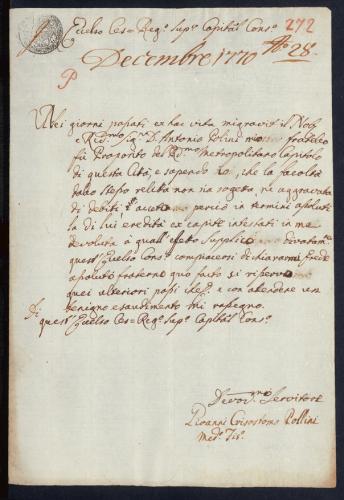 Excelso Ces=Reg.º Sup.º Capital Cons.º 272
Decembre 1770 N.º 28.
P
Nei giorni passati, ex hac vita migravit il Nob.
e Sig.r D. Antonio Polini mio fratello
fù Proposito del Metropolitano Capitolo
di questa Città, e sapendo che la facoltà
dallo stesso relicta non sia sogeta, ne aggravata
di debiti, perciò in termini assoluti
la di lui eredità ex capite intestati in me
devoluta à qual effeto Supplico
quest' Excelso Cons.º compiacersi di chiararmi Erede
assoluto fraterno quo facto si riservano
quei ulteriori passi e con atendere un
benigno esaudimento mi rasegno.
Di quest' Excelso Ces=Reg.º Sup.º Capital Cons.º
Servitore
Giovanni Crisostomo Pollini